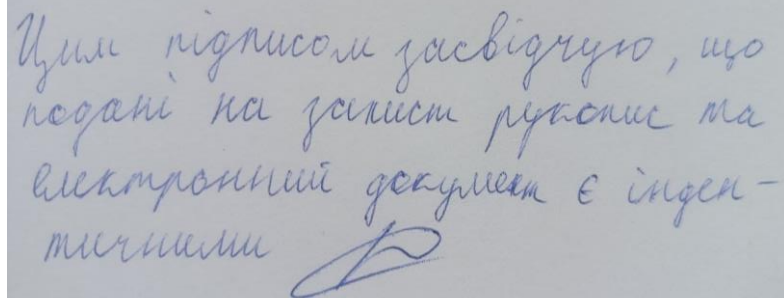 Цим підписом засвідчую, що
подані на захист рукопис та
електронний документ є інден-
тичними